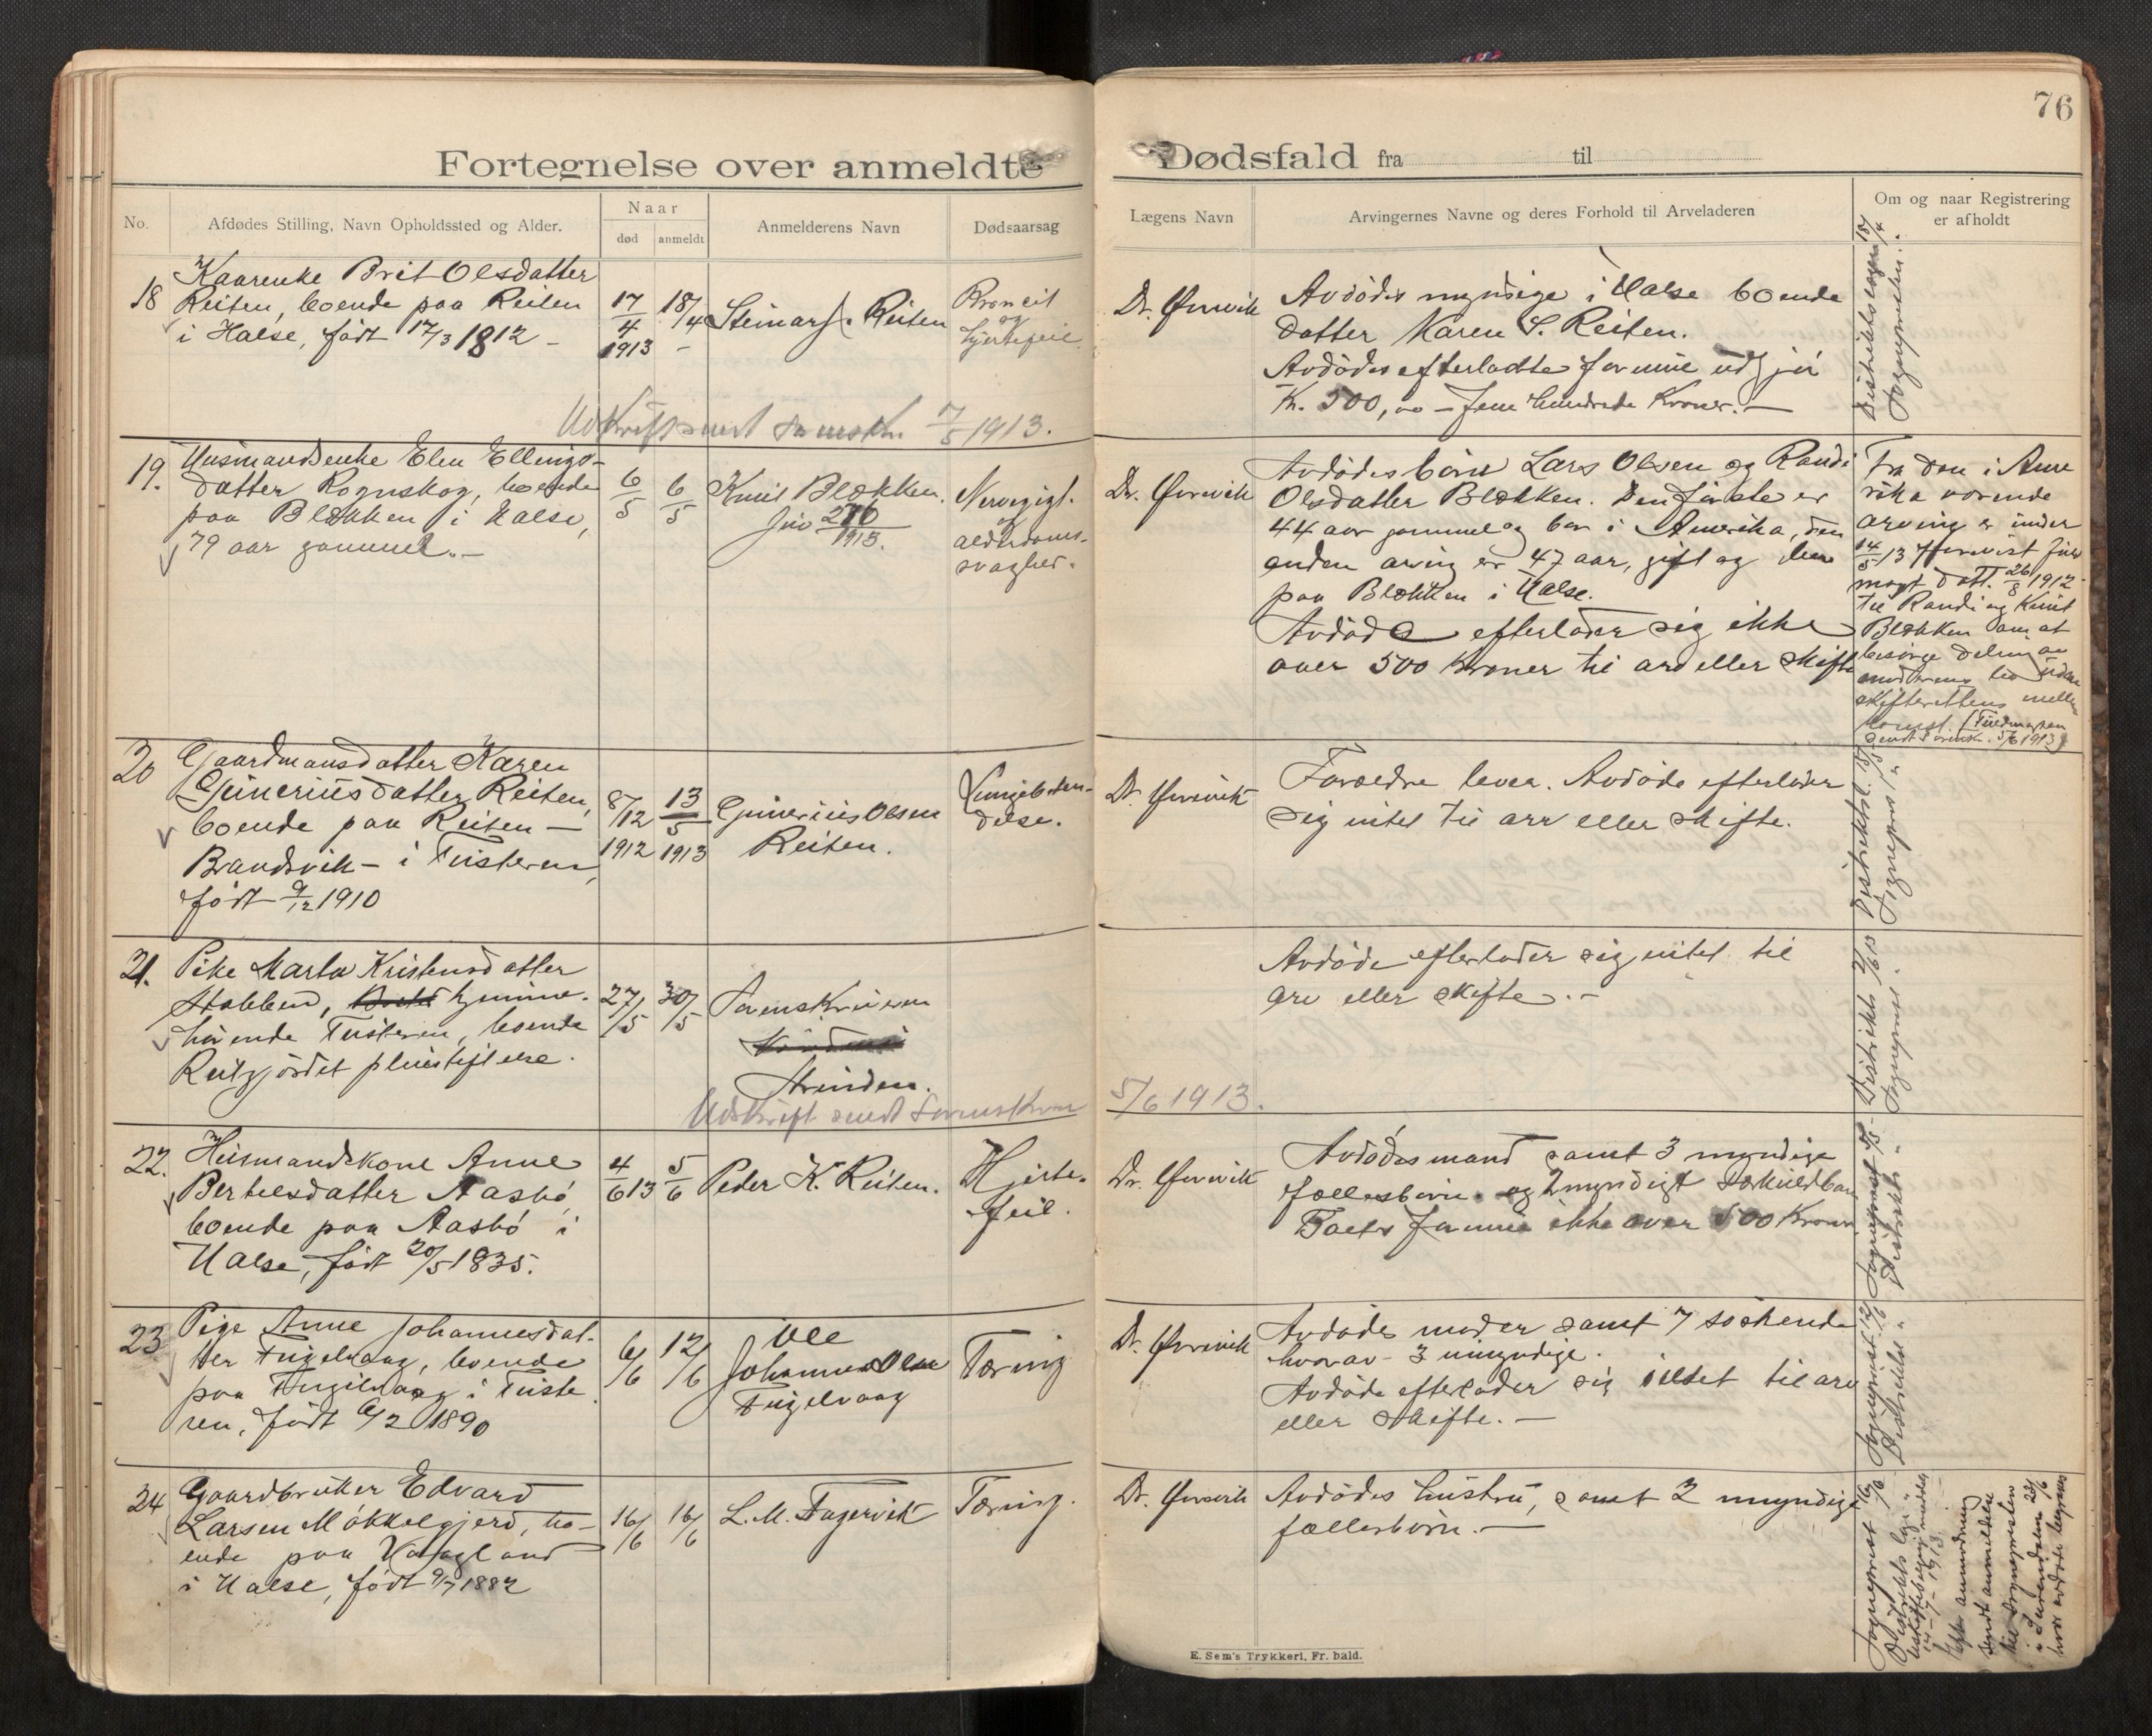 76
Fortegnelse over anmeldte Dødsfald fra til
No.
Afdødes Stilling, Navn Opholdssted og Alder.
Naar
død
anmeldt
Anmelderens Navn
Dødsaarsag
Lægens Navn
Arvingernes Navne og deres Forhold til Arveladeren
Om og naar Registrering
er afholdt
18
Kaarenke Brit Olsdatter
Reiten, boende paa Reiten
i Halse, født 17/3 1812 -
17/4 1913
18/4 -
Steinar J. Reiten
og
Hjertefeil
Dr. Ørsvik
Avdødes myndige i Halse boende
datter Karen S. Reiten.
Avdødes efterladte formue udgjør
Kr. 500,00 - fem hundrede Kroner. -
Sognepresten
Udskrift sendt Lensm. 7/5 1913.
19.
Husmandsenke Elen Ellings-
datter Rognskog, boende
paa Blekken i Halse,
79 aar gammel. -
6/5
6/5
Knut Blekken.
1913.
alderdoms-
svaghed.
Dr. Ørsvik
Avdødes børn Lars Olsen og Randi
Olsdatter Blekken. Den første er
44 aar gammel og bor i Amerika, den
anden arving er 47 aar, gift og bor
paa Blekken i Halse.
Avdøde efterlader sig ikke
over 500 Kroner til arv eller skifte
Fra den i Ame
rika værende
arving er under
14/5 13 forevist fuld
magt datt. 26/8 1912
til Randi og Knut
Blekken om at
besørge delingen
uden
skifterettens mellem
komst. (Fuldmagten
sendt 5/6 1913)
20
Gaardmansdatter Karen
Guneriusdatter Reiten,
boende paa Reiten -
Brandsvik - i Tusteren,
født 9/12 1910
8/12 1912
13/5 1913
Gunerius Olsen
Reiten.
Lungebeten-
delse.
Dr. Ørsvik
Forældre lever. Avdøde efterlader
sig intet til arv eller skifte.
21.
Pike Marta Kristensdatter
Stabben, hjemme-
hørende Tusteren, boende
Reitgjerdet pleiestiftelse.
27/5
30/5
Lensmannen
Strinden.
Avdøde efterlader sig intet til
arv eller skifte. -
Udskrift sendt Sorenskriv 5/6 1913.
22.
Husmandskone Anne
Bertelsdatter Aasbø,
boende paa Aasbø i
Halse, født 20/5 1835.
4/6 13
5/6
Peder K. Reiten.
Hjerte-
feil.
Dr. Ørsvik
Avdødes mand samt 3 myndige
fællesbørn og 2 myndigt særkuldbarn
Boets formue ikke over 500 Kroner
23
Pige Anne Johannesdat-
ter Fugelvaag, boende
paa Fugelvaag i Tuste
ren, født 6/2 1890
6/6
12/6
Ole
Johannes Olsen
Fugelvaag
Tæring
Dr. Ørsvik
Avdødes moder samt 7 søskende
hvorav 3 umyndige.
Avdøde efterlader sig intet til arv
eller skifte. -
24
Gaardbruker Edvard
Larsen Møkkelgjerd, bo-
ende paa Vaagland
i Halse, født 9/7 1882
16/6
16/6
L. M. Fagervik
Tæring.
Dr. Ørsvik
Avdødes hustru, samt 2 myndige
fællesbørn. -
Sogneprest 16/6
14-7-1913
Efter anmodning
sendt anmeldelse
til Sognepresten
i Surendalen 23/6
hvor avdøde begraves
E. Sem's Trykkeri, Fr.hald.